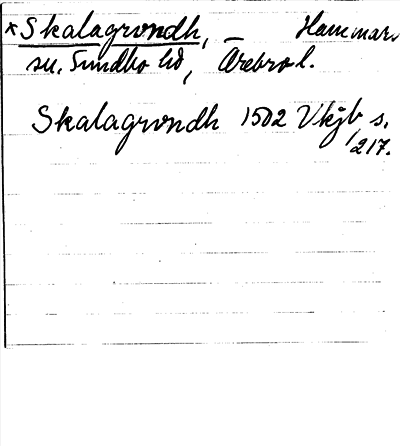 *Skalagrvndh, Hammars
sn, Sundbo hd, Örebro l.
Skalagrvndh 1502 Vkjb s.
217.